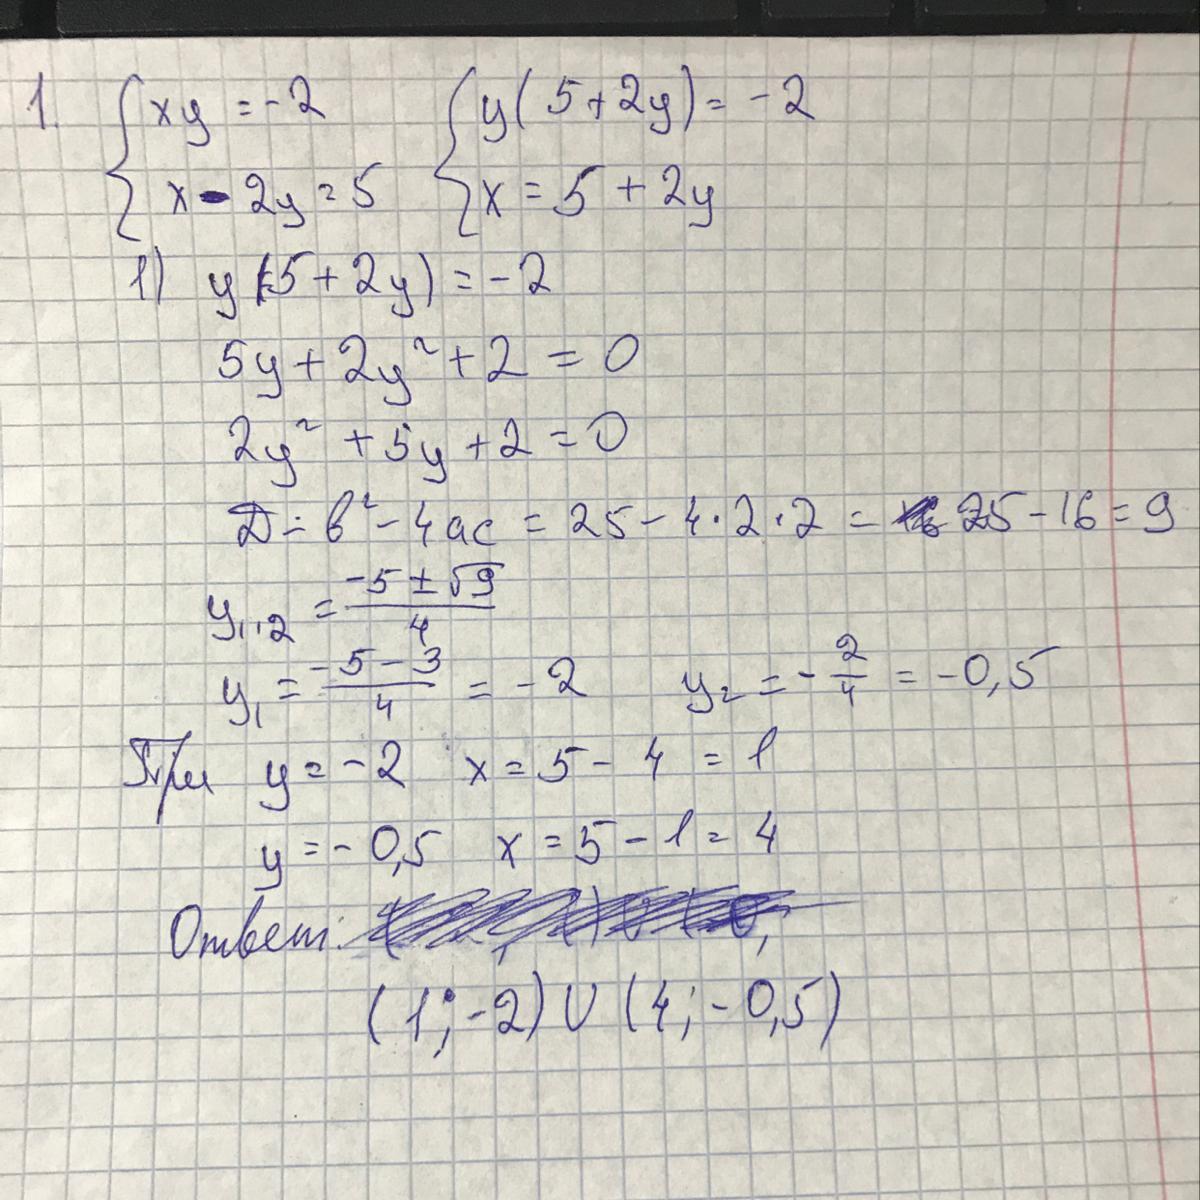 1. { xy = -2 { y(5+2y) = -2
x - 2y = 5 x = 5 + 2y
1) y(5+2y) = -2
5y + 2y² + 2 = 0
2y² + 5y + 2 = 0
D = b² - 4ac = 25 - 4·2·2 = 25 - 16 = 9
y₁,₂ = (-5 ± √9)/4
y₁ = (-5 - 3)/4 = -2 y₂ = -2/4 = -0,5
При y = -2 x = 5 - 4 = 1
y = -0,5 x = 5 - 1 = 4
Ответ:
(1; -2) U (4; -0,5)